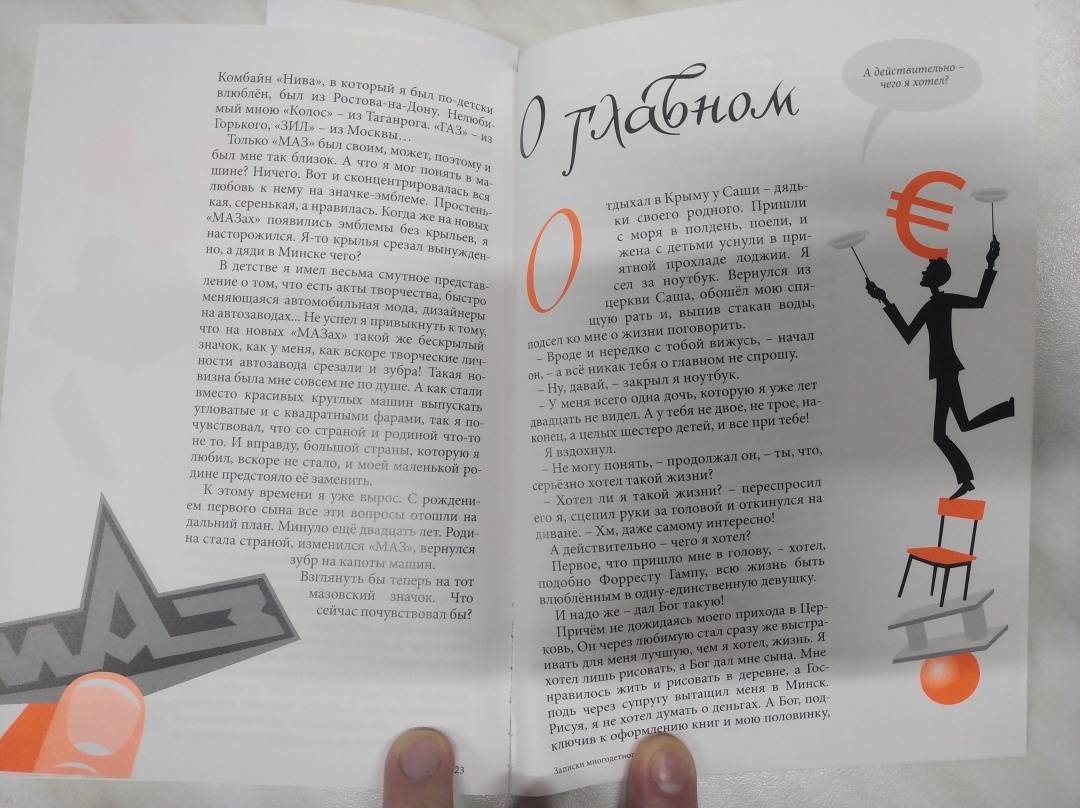 Комбайн «Нива», в который я был по-детски
влюблён, был из Ростова-на-Дону. Нелюби-
мый мною «Колос» – из Таганрога. «ГАЗ» – из
Горького, «ЗИЛ» – из Москвы…
Только «МАЗ» был своим, может, поэтому и
был мне так близок. А что я мог понять в ма-
шине? Ничего. Вот и сконцентрировалась вся
любовь к нему на значке-эмблеме. Простень-
кая, серенькая, а нравилась. Когда же на новых
«МАЗах» появились эмблемы без крыльев, я
насторожился. Я-то крылья срезал вынужден-
но, а дяди в Минске чего?
В детстве я имел весьма смутное представ-
ление о том, что есть акты творчества, быстро
меняющаяся автомобильная мода, дизайнеры
на автозаводах... Не успел я привыкнуть к тому,
что на новых «МАЗах» такой же бескрылый
значок, как у меня, как вскоре творческие лич-
ности автозавода срезали и зубра! Такая но-
визна была мне совсем не по душе. А как стали
вместо красивых круглых машин выпускать
угловатые и с квадратными фарами, так я по-
чувствовал, что со страной и родиной что-то
не то. И вправду, большой страны, которую я
любил, вскоре не стало, и моей маленькой ро-
дине предстояло её заменить.
К этому времени я уже вырос. С рождени-
ем первого сына все эти вопросы отошли на
дальний план. Минуло ещё двадцать лет. Роди-
на стала страной, изменился «МАЗ», вернулся
зубр на капоты машин.
Взглянуть бы теперь на тот
мазовский значок. Что
сейчас почувствовал бы?
МАЗ
23
О главном
А действительно –
чего я хотел?
€
Отдыхал в Крыму у Саши – дядь-
ки своего родного. Пришли
с моря в полдень, поели, и
жена с детьми уснули в при-
ятной прохладе лоджии. Я
сел за ноутбук. Вернулся из
церкви Саша, обошёл мою спя-
щую рать и, выпив стакан воды,
подсел ко мне о жизни поговорить.
– Вроде и нередко с тобой вижусь, – начал
он, – а всё никак тебя о главном не спрошу.
– Ну, давай, – закрыл я ноутбук.
– У меня всего одна дочь, которую я уже лет
двадцать не видел. А у тебя не двое, не трое, на-
конец, а целых шестеро детей, и все при тебе!
Я вздохнул.
– Не могу понять, – продолжал он, – ты, что,
серьёзно хотел такой жизни?
– Хотел ли я такой жизни? – переспросил
его я, сцепил руки за головой и откинулся на
диване. – Хм, даже самому интересно!
А действительно – чего я хотел?
Первое, что пришло мне в голову, – хотел,
подобно Форресту Гампу, всю жизнь быть
влюблённым в одну-единственную девушку.
И надо же – дал Бог такую!
Причём не дожидаясь моего прихода в Цер-
ковь, Он через любимую стал сразу же выстра-
ивать для меня лучшую, чем я хотел, жизнь. Я
хотел лишь рисовать, а Бог дал мне сына. Мне
нравилось жить и рисовать в деревне, а Гос-
подь через супругу вытащил меня в Минск.
Рисуя, я не хотел думать о деньгах. А Бог, под-
ключив к оформлению книг и мою половинку,
Записки